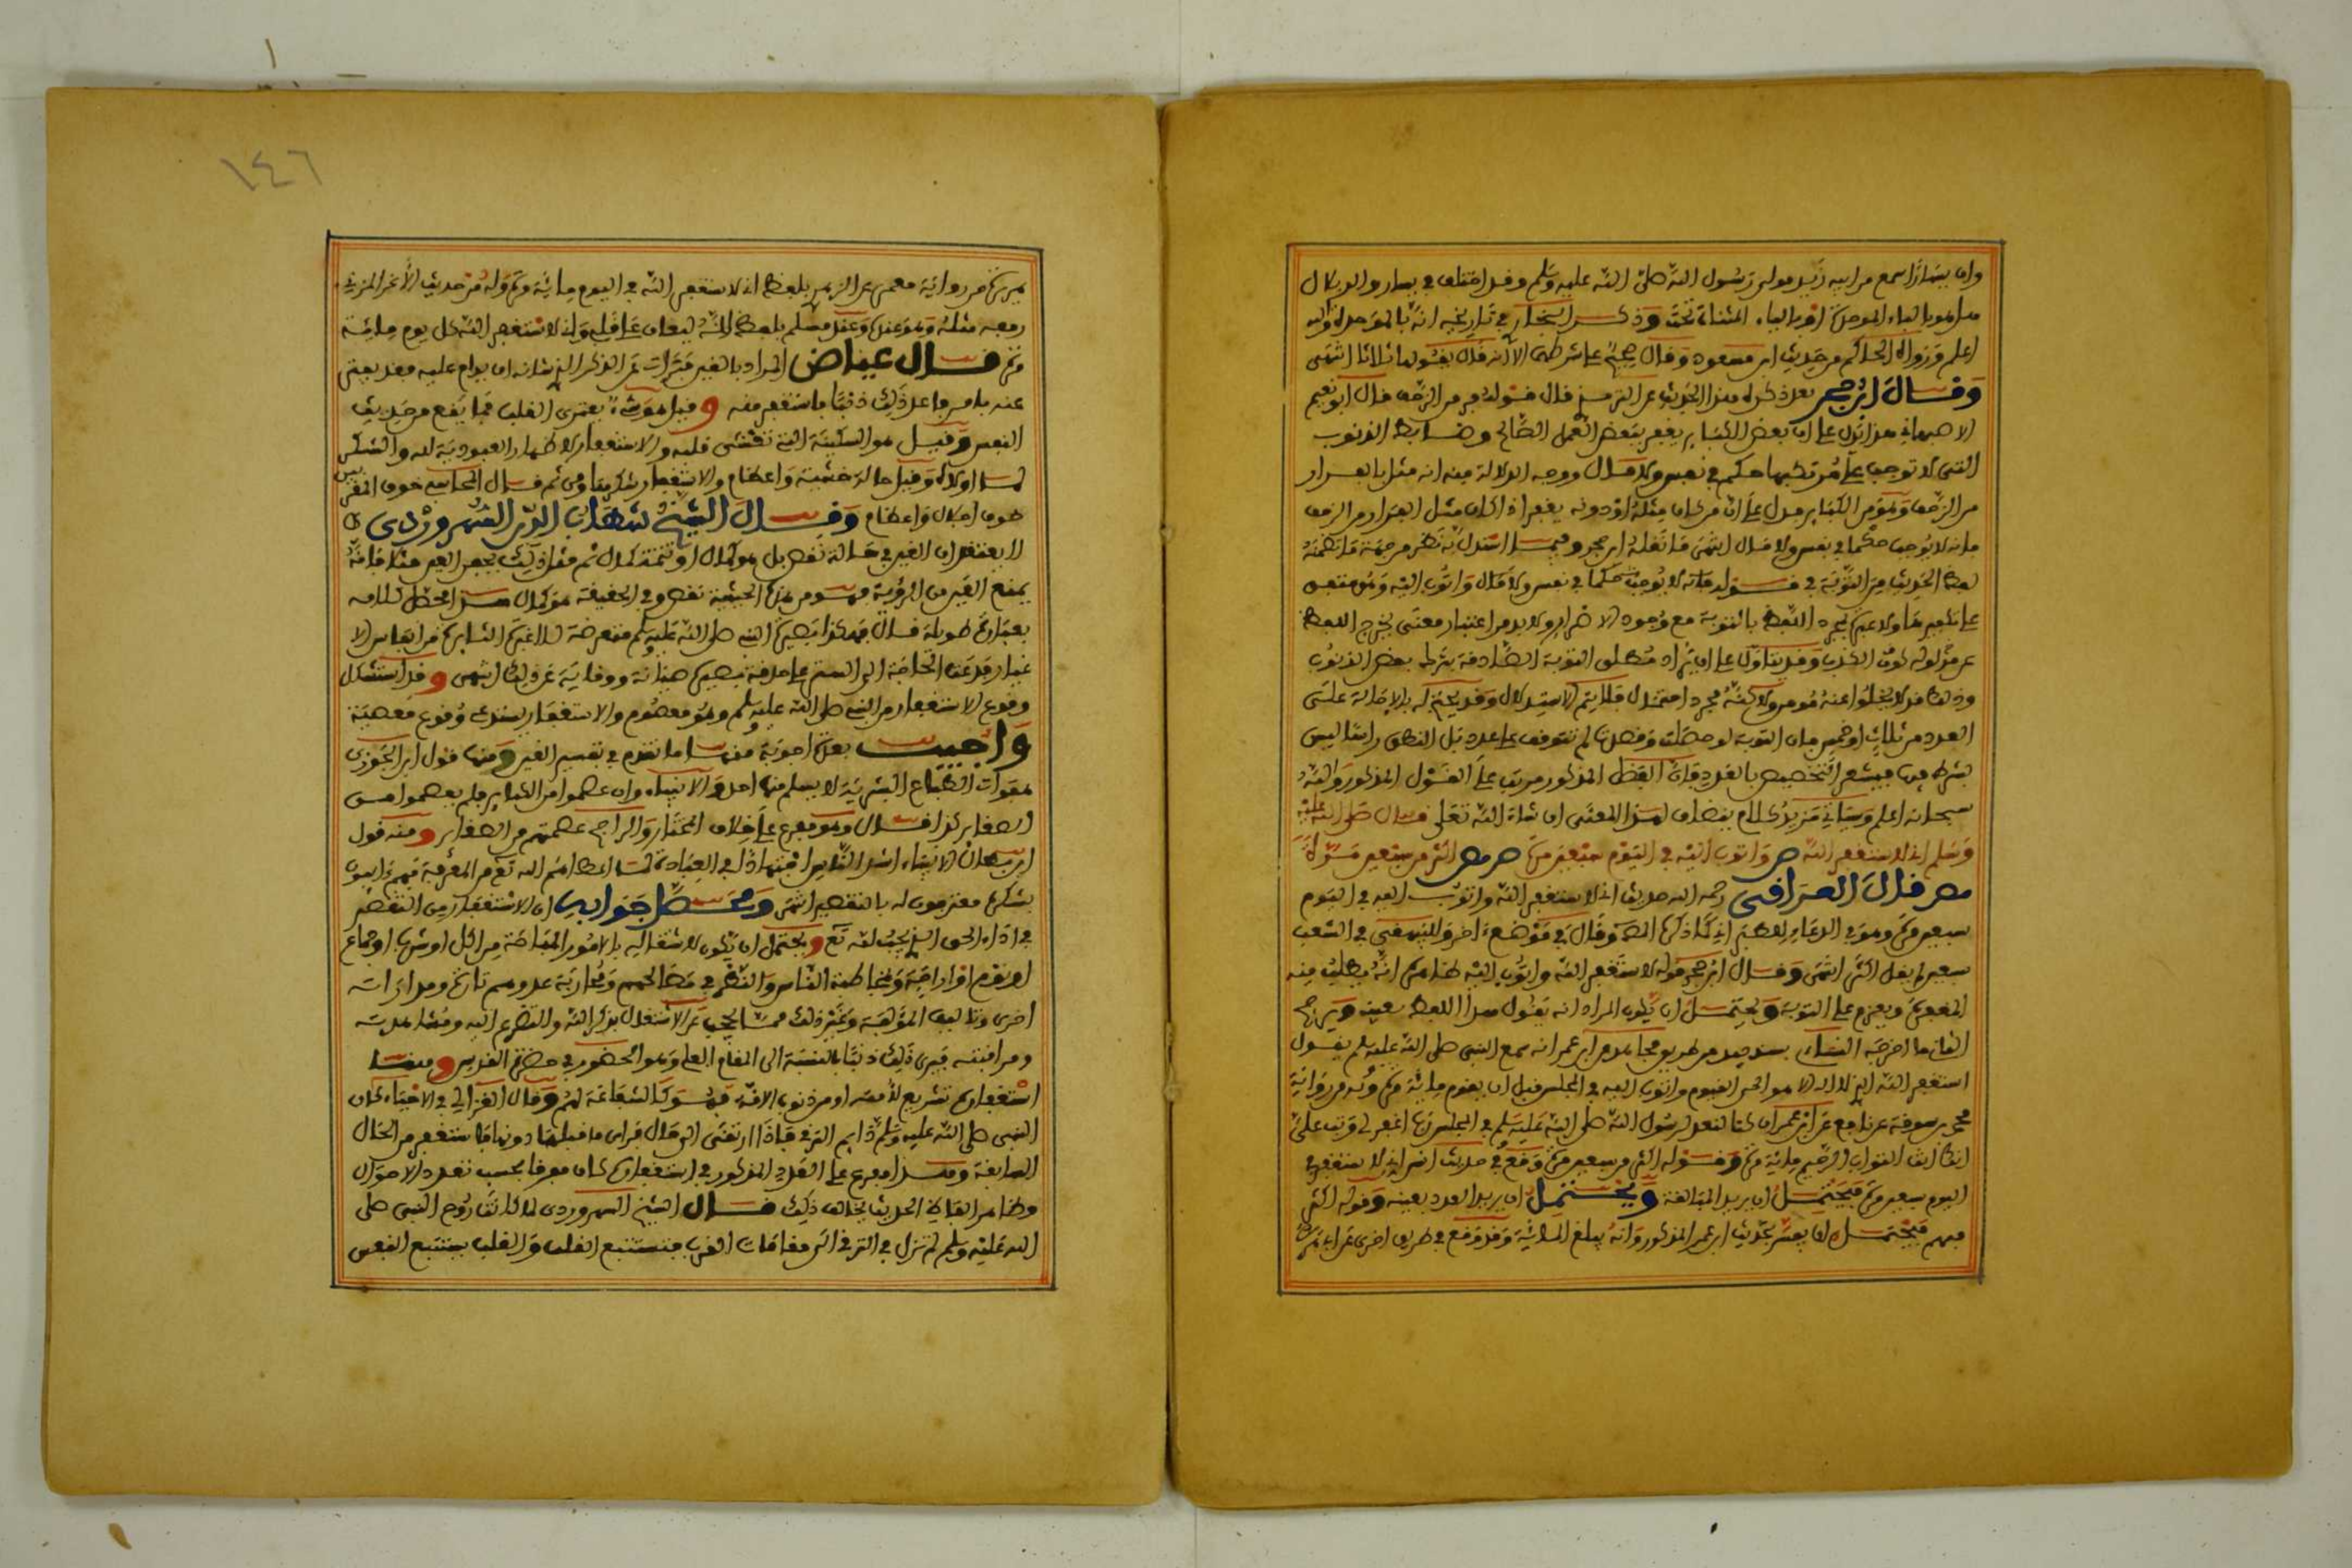 وان يسارا سمع من ابيه زيد مولى رسول الله صلى الله عليه وسلم وقد اختلف في يسار والد بلال
هل هو بالباء الموحدة او بالياء المثناة تحت وذكر البخاري في تاريخه انه بالموحدة والله
اعلم ورواه الحاكم من حديث ابن مسعود وقال صحيح على شرطهما الا انه قال يقولها ثلاثا انتهى
وقال ابن حجر بعد ذكره هذا الحديث عن الترمذي قال قوله فر من الزحف قال ابو نعيم
الاصبهاني هذا يدل على ان بعض الكبائر يغفر ببعض العمل الصالح وضابطه الذنوب
التي لا توجب على مرتكبها حكم في نفس ولا مال ووجه الدلالة منه انه مثل بالفرار
من الزحف وهو من الكبائر فدل على ان من كان مثله او دونه يغفر اذا كان مثل الفرار من الزحف
فانه لا يوجب حكما في نفس ولا مال انتهى ما نقله ابن حجر
لفظ الحديث من التوبة في قوله فانه لا يوجب حكما في نفس ولا مال واتوب اليه
مجرد التلفظ بالتوبة مع وجود الاضرار ولا بد من اعتبار معنى يخرج اللفظ
عن مدلوله على ان يراد مطلق التوبة الصادقة بشرط بعض الذنوب
سبحانه اعلم وسياتي مزيد كلام يتضاف لهذا المعنى ان شاء الله تعلى قال صلى الله عليه
وسلم اني لاستغفر الله ص واتوب اليه في اليوم سبعين مرة ص مص اكثر من سبعين مرة
مص قال العراقي رحمه الله حديث اني لاستغفر الله واتوب اليه في اليوم
سبعين مرة وهو في الدعاء للطبراني كذا ذكره المص وقال في موضع اخر والبيهقي في الشعب
سبعين لم يقل اكثر انتهى وقال ابن حجر قوله لاستغفر الله واتوب اليه ظاهره انه يطلب منه
المغفرة ويعزم على التوبة ويحتمل ان يكون المراد انه يقول هذا اللفظ بعينه ويرجح
الثاني ما اخرجه النساءي بسند جيد من طريق مجاهد عن ابن عمر انه سمع النبي صلى الله عليه سلم يقول
استغفر الله الذي لا اله الا هو الحي القيوم واتوب اليه في المجلس قبل ان يقوم ماية مرة وله من رواية
محمد بن سوقة عن نافع عن ابن عمر ان كنا لنعد لرسول الله صلى الله عليه سلم في المجلس رب اغفر لي وتب علي
انك انت التواب الرحيم ماية مرة وقوله اكثر من سبعين مرة وقع في حديث انس اني لاستغفر في
اليوم سبعين مرة فيحتمل ان يريد المبالغة ويحتمل ان يريد العدد بعينه وقوله اكثر
مبهم فيحتمل ان يفسر بحديث ابن عمر المذكور وانه يبلغ الماية وقد وقع في طريق اخرى عن ابي
هريرة من رواية معمر عن الزهري بلفظ اني لاستغفر الله في اليوم ماية مرة وله من حديث الاغر المزني
رفعه مثله وهو عنده وعند مسلم بلفظ انه ليغان على قلبي واني لاستغفر الله كل يوم ماية
مرة قال عياض المراد بالغين فترات عن الذكر الذي شانه ان يداوم عليه فاذا فتر
عنه لامر ما عد ذلك ذنبا فاستغفر منه وقيل هو شيء يعتري القلب مما يقع من حديث
النفس وقيل هو السكينة التي تغشى قلبه والاستغفار لاظهار العبودية لله والشكر
لما اولاه وقيل حالة خشية واعظام والاستغفار شكرها ومن ثم قال المحاسبي خوف المقربين
خوف اجلال واعظام وقال الشيخ شهاب الدين السهروردي
لا يعتقد ان الغين في حالة نقص بل هو كمال او تتمة كمال ثم مثل ذلك بجفن العين
يمنع العين من الرؤية فهو من هذه الحيثية نقص وفي الحقيقة هو كمال هذا محصل كلامه
بعبارة طويلة قال فهكذا بصيرة النبي صلى الله عليه سلم متعرضة للاغبرة الثايرة من انفاس الا
غيار فدعت الحاجة الى الستر على حدقة بصيرته صيانة ووقاية عن ذلك انتهى وقد استشكل
وقوع الاستغفار من النبي صلى الله عليه سلم وهو معصوم والاستغفار يستدعي وقوع معصية
واجيب بعدة اجوبة منها ما تقدم في تفسير الغين ومنها قول ابن الجوزي
هفوات الطباع البشرية لا يسلم منها احد والانبياء وان عصموا من الكبائر فلم يعصموا من
الصغاير كذا قال وهو مفرع على خلاف المختار والراجح عصمتهم من الصغاير ومنه قول
ابن بطال الانبياء اشد الناس اجتهادا في العبادة لما اعطاهم الله تع من المعرفة فهم دايبون
بشكره معترفون له بالتقصير انتهى ومحصل جوابه ان الاستغفار من التقصير
في اداء الحق الذي يجب لله تع ويحتمل ان يكون لاشتغاله بالامور المباحة من اكل او شرب او جماع
او نوم او راحة ومخاطبة الناس والنظر في مصالحهم ومحاربة عدوهم تارة ومداراته
اخرى وتاليف المؤلفة وغير ذلك مما يحجب عن الاشتغال بذكر الله والتضرع اليه ومشاهدته
ومراقبته فيرى ذلك ذنبا بالنسبة الى المقام العلي وهو الحضور في حضرة القدس ومنها
استغفاره تشريع لامته او من ذنوب الامة فهو كالشفاعة لهم وقال الغزالي في الاحياء كان
النبي صلى الله عليه وسلم دايم الترقي فاذا ارتقى الى حال راى ما قبلها دونها فاستغفر من الحال
السابقة وهذا مفرع على العدد المذكور في استغفاره كان مفرقا بحسب تعدد الاحوال
وظاهر الفاظ الحديث يخالف ذلك قال الشيخ السهروردي لما كانت روح النبي صلى
الله عليه وسلم لم تزل في الترقي الى مقامات القرب فتستتبع القلب والقلب يستتبع النفس
١٤٦